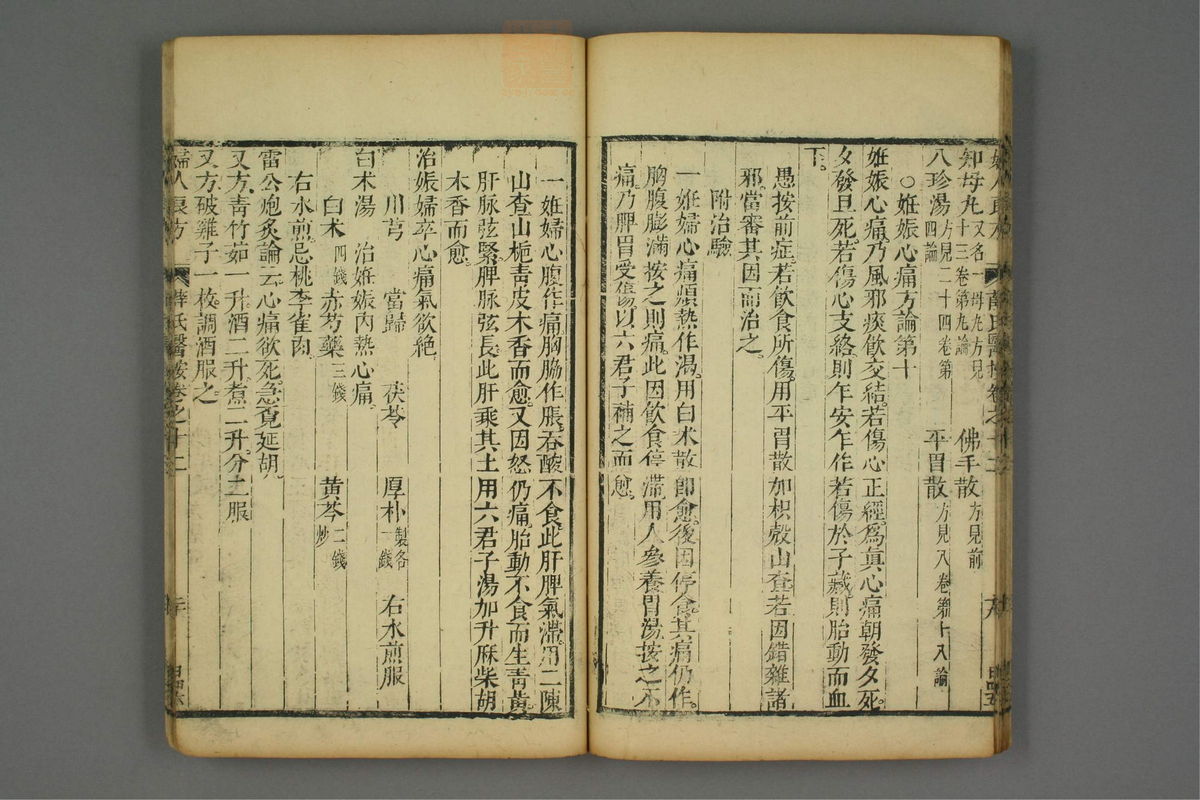 知母丸又名一母丸方見十三卷第九論 佛手散方見前
八珍湯方見二十四卷第四論 平胃散方見八卷第十八論
○妊娠心痛方論第十
妊娠心痛乃風邪痰飲交結若傷心正經爲真心痛朝發夕死
夕發旦死若傷心支絡則乍安乍作若傷於子藏則胎動而血
下
愚按前症若飲食所傷用平胃散加枳殼山查若因錯雜諸
邪當審其因而治之
附治驗
一妊婦心痛煩熱作渴用白朮散即愈後因停食其痛仍作
胸腹膨滿按之則痛此因飲食停滯用人參養胃湯按之不
痛乃脾胃受傷以六君子補之而愈
一妊婦心腹作痛胸脇作脹吞酸不食此肝脾氣滯用二陳
山查山梔青皮木香而愈又因怒仍痛胎動不食而生青黃
肝脉弦緊脾脉弦長此肝乘其土用六君子湯加升麻柴胡
木香而愈
治娠婦卒心痛氣欲絶
川芎 當歸 茯苓 厚朴製各一錢 右水煎服
白术湯 治妊娠内熱心痛
白术四錢 赤芍藥三錢 黄芩二錢炒
右水煎忌桃李雀肉
雷公炮炙論云心痛欲死急覓延胡
又方青竹茹一升酒二升煮二升分二服
又方破雞子一枚調酒服之
婦人良方 薛氏醫按卷之十二